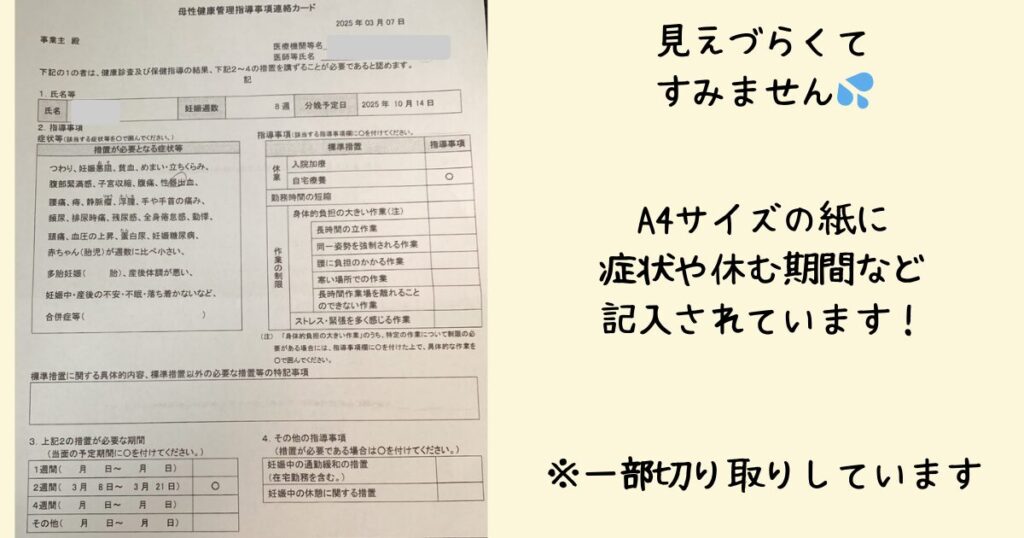 母性健康管理指導事項連絡カード
2025 年 03 月 07 日
事業主 殿
医療機関等名
医師等氏名
下記の1の者は、健康診査及び保健指導の結果、下記2～4の措置を講ずることが必要であると認めます。
記
1. 氏名等
氏名 妊娠週数 8 週 分娩予定日 2025 年 10 月 14 日
2. 指導事項
症状等(該当する症状等を〇で囲んでください。)
措置が必要となる症状等
つわり、妊娠悪阻、貧血、めまい・立ちくらみ、
腹部緊満感、子宮収縮、腹痛、性器出血、
腰痛、痔、静脈瘤、浮腫、手や手首の痛み、
頻尿、排尿時痛、残尿感、全身倦怠感、動悸、
頭痛、血圧の上昇、蛋白尿、妊娠糖尿病、
赤ちゃん(胎児)が週数に比べ小さい、
多胎妊娠( 胎)、産後体調が悪い、
妊娠中・産後の不安・不眠・落ち着かないなど、
合併症等( )
指導事項(該当する指導事項欄に〇を付けてください。)
標準措置 指導事項
休業
入院加療
自宅療養 〇
勤務時間の短縮
作業の制限
身体的負担の大きい作業(注)
長時間の立作業
同一姿勢を強制される作業
腰に負担のかかる作業
寒い場所での作業
長時間作業場を離れること
のできない作業
ストレス・緊張を多く感じる作業
(注) 「身体的負担の大きい作業」のうち、特定の作業について制限の必
要がある場合には、指導事項欄に〇を付けた上で、具体的な作業を
〇で囲んでください。
標準措置に関する具体的内容、標準措置以外の必要な措置等の特記事項
3. 上記2の措置が必要な期間
(当面の予定期間に〇を付けてください。)
1週間( 月 日～ 月 日)
2週間( 3月 8日～ 3月 21日) 〇
4週間( 月 日～ 月 日)
その他( 月 日～ 月 日)
4. その他の指導事項
(措置が必要である場合は〇を付けてください。)
妊娠中の通勤緩和の措置
(在宅勤務を含む。)
妊娠中の休憩に関する措置
見えづらくて
すみません💦
A4サイズの紙に
症状や休む期間など
記入されています！
※一部切り取りしています